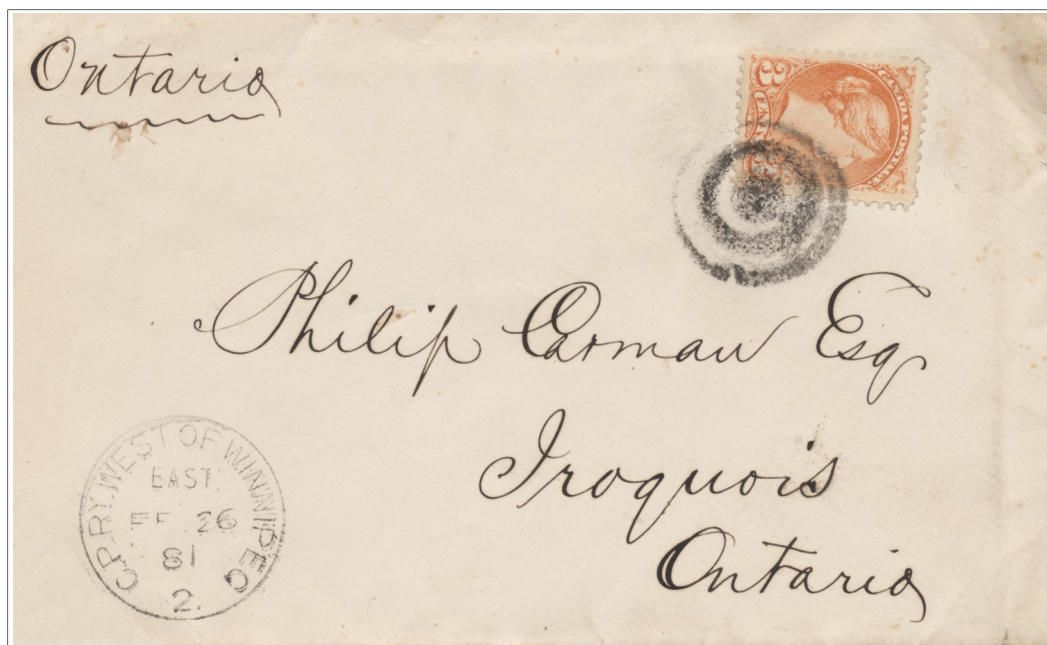 Ontario
CANADA POSTAGE
3
Philip Carman Esq
Iroquois
Ontario
C.P.RY. WEST OF WINNIPEG
EAST.
FE 26
81
2.